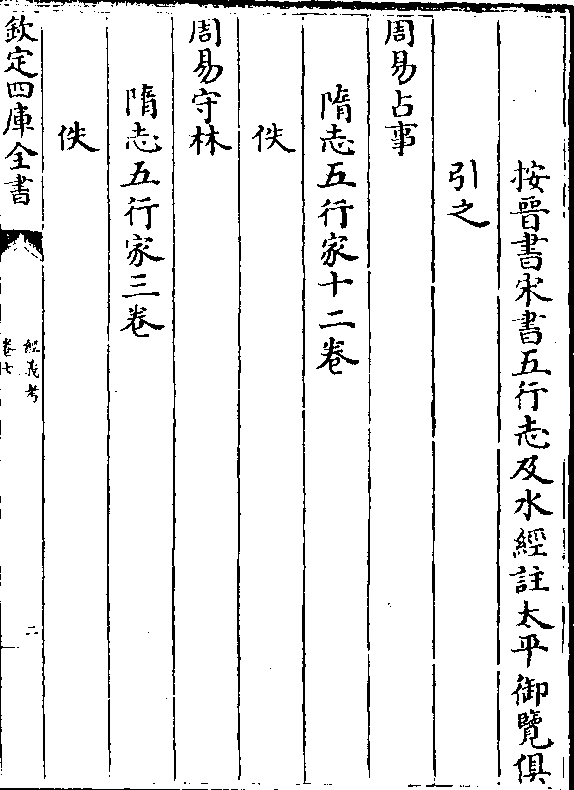 按晉書宋書五行志及水經註太平御覽俱
引之
周易占事
隋志五行家十二卷
佚
周易守林
隋志五行家三卷
佚
欽定四庫全書
經義考
卷七
二